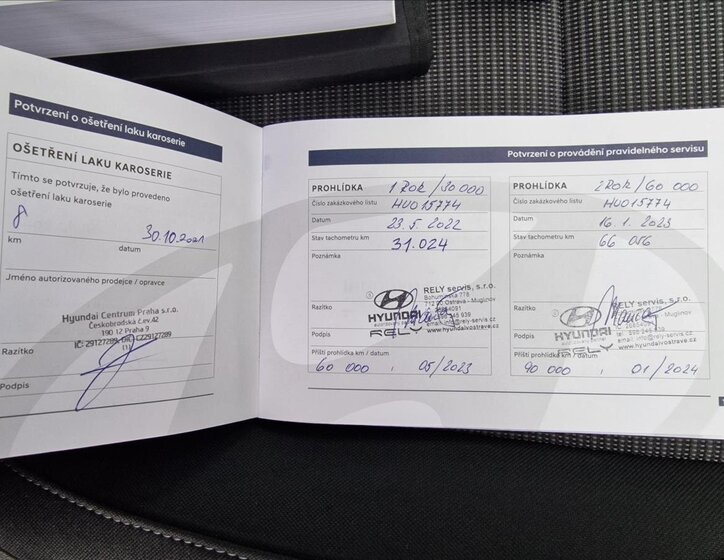 Potvrzení o ošetření laku karoserie
OŠETŘENÍ LAKU KAROSERIE
Tímto se potvrzuje, že bylo provedeno
ošetření laku karoserie
8
30.10.2021
km
datum
Jméno autorizovaného prodejce / opravce
Hyundai Centrum Praha s.r.o.
Českobrodská č.ev.42
190 12 Praha 9
IČ: 29127289, DIČ: CZ29127289
Razítko
Podpis
Potvrzení o provádění pravidelného servisu
PROHLÍDKA 1 Rok / 30 000
Číslo zakázkového listu HU015774
Datum 23. 5. 2022
Stav tachometru km 31.024
Poznámka
Razítko
HYUNDAI
RELY
RELY servis, s.r.o.
Bohumínská 778
712 00 Ostrava - Muglinov
www.hyundaivostrave.cz
Podpis
Příští prohlídka km / datum
60 000 , 05/2023
PROHLÍDKA 2 Rok / 60 000
Číslo zakázkového listu HU015774
Datum 16. 1. 2023
Stav tachometru km 66 056
Poznámka
Razítko
HYUNDAI
RELY
RELY servis, s.r.o.
www.hyundaivostrave.cz
Podpis
Příští prohlídka km / datum
90 000 , 01/2024